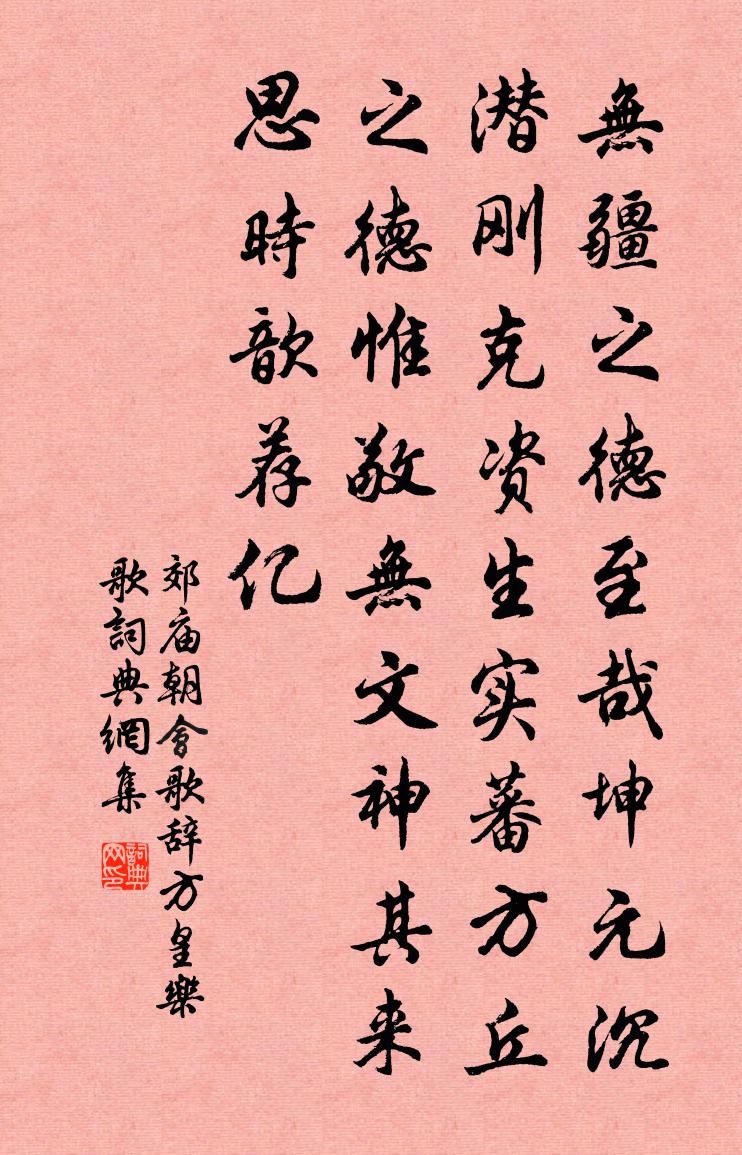 無疆之德至哉坤元沉
潜刚克资生实蕃方丘
之德惟敬無文神其来
思時歆荐亿
郊庙朝會歌辞方皇樂
歌詞典網集
詞典
网印